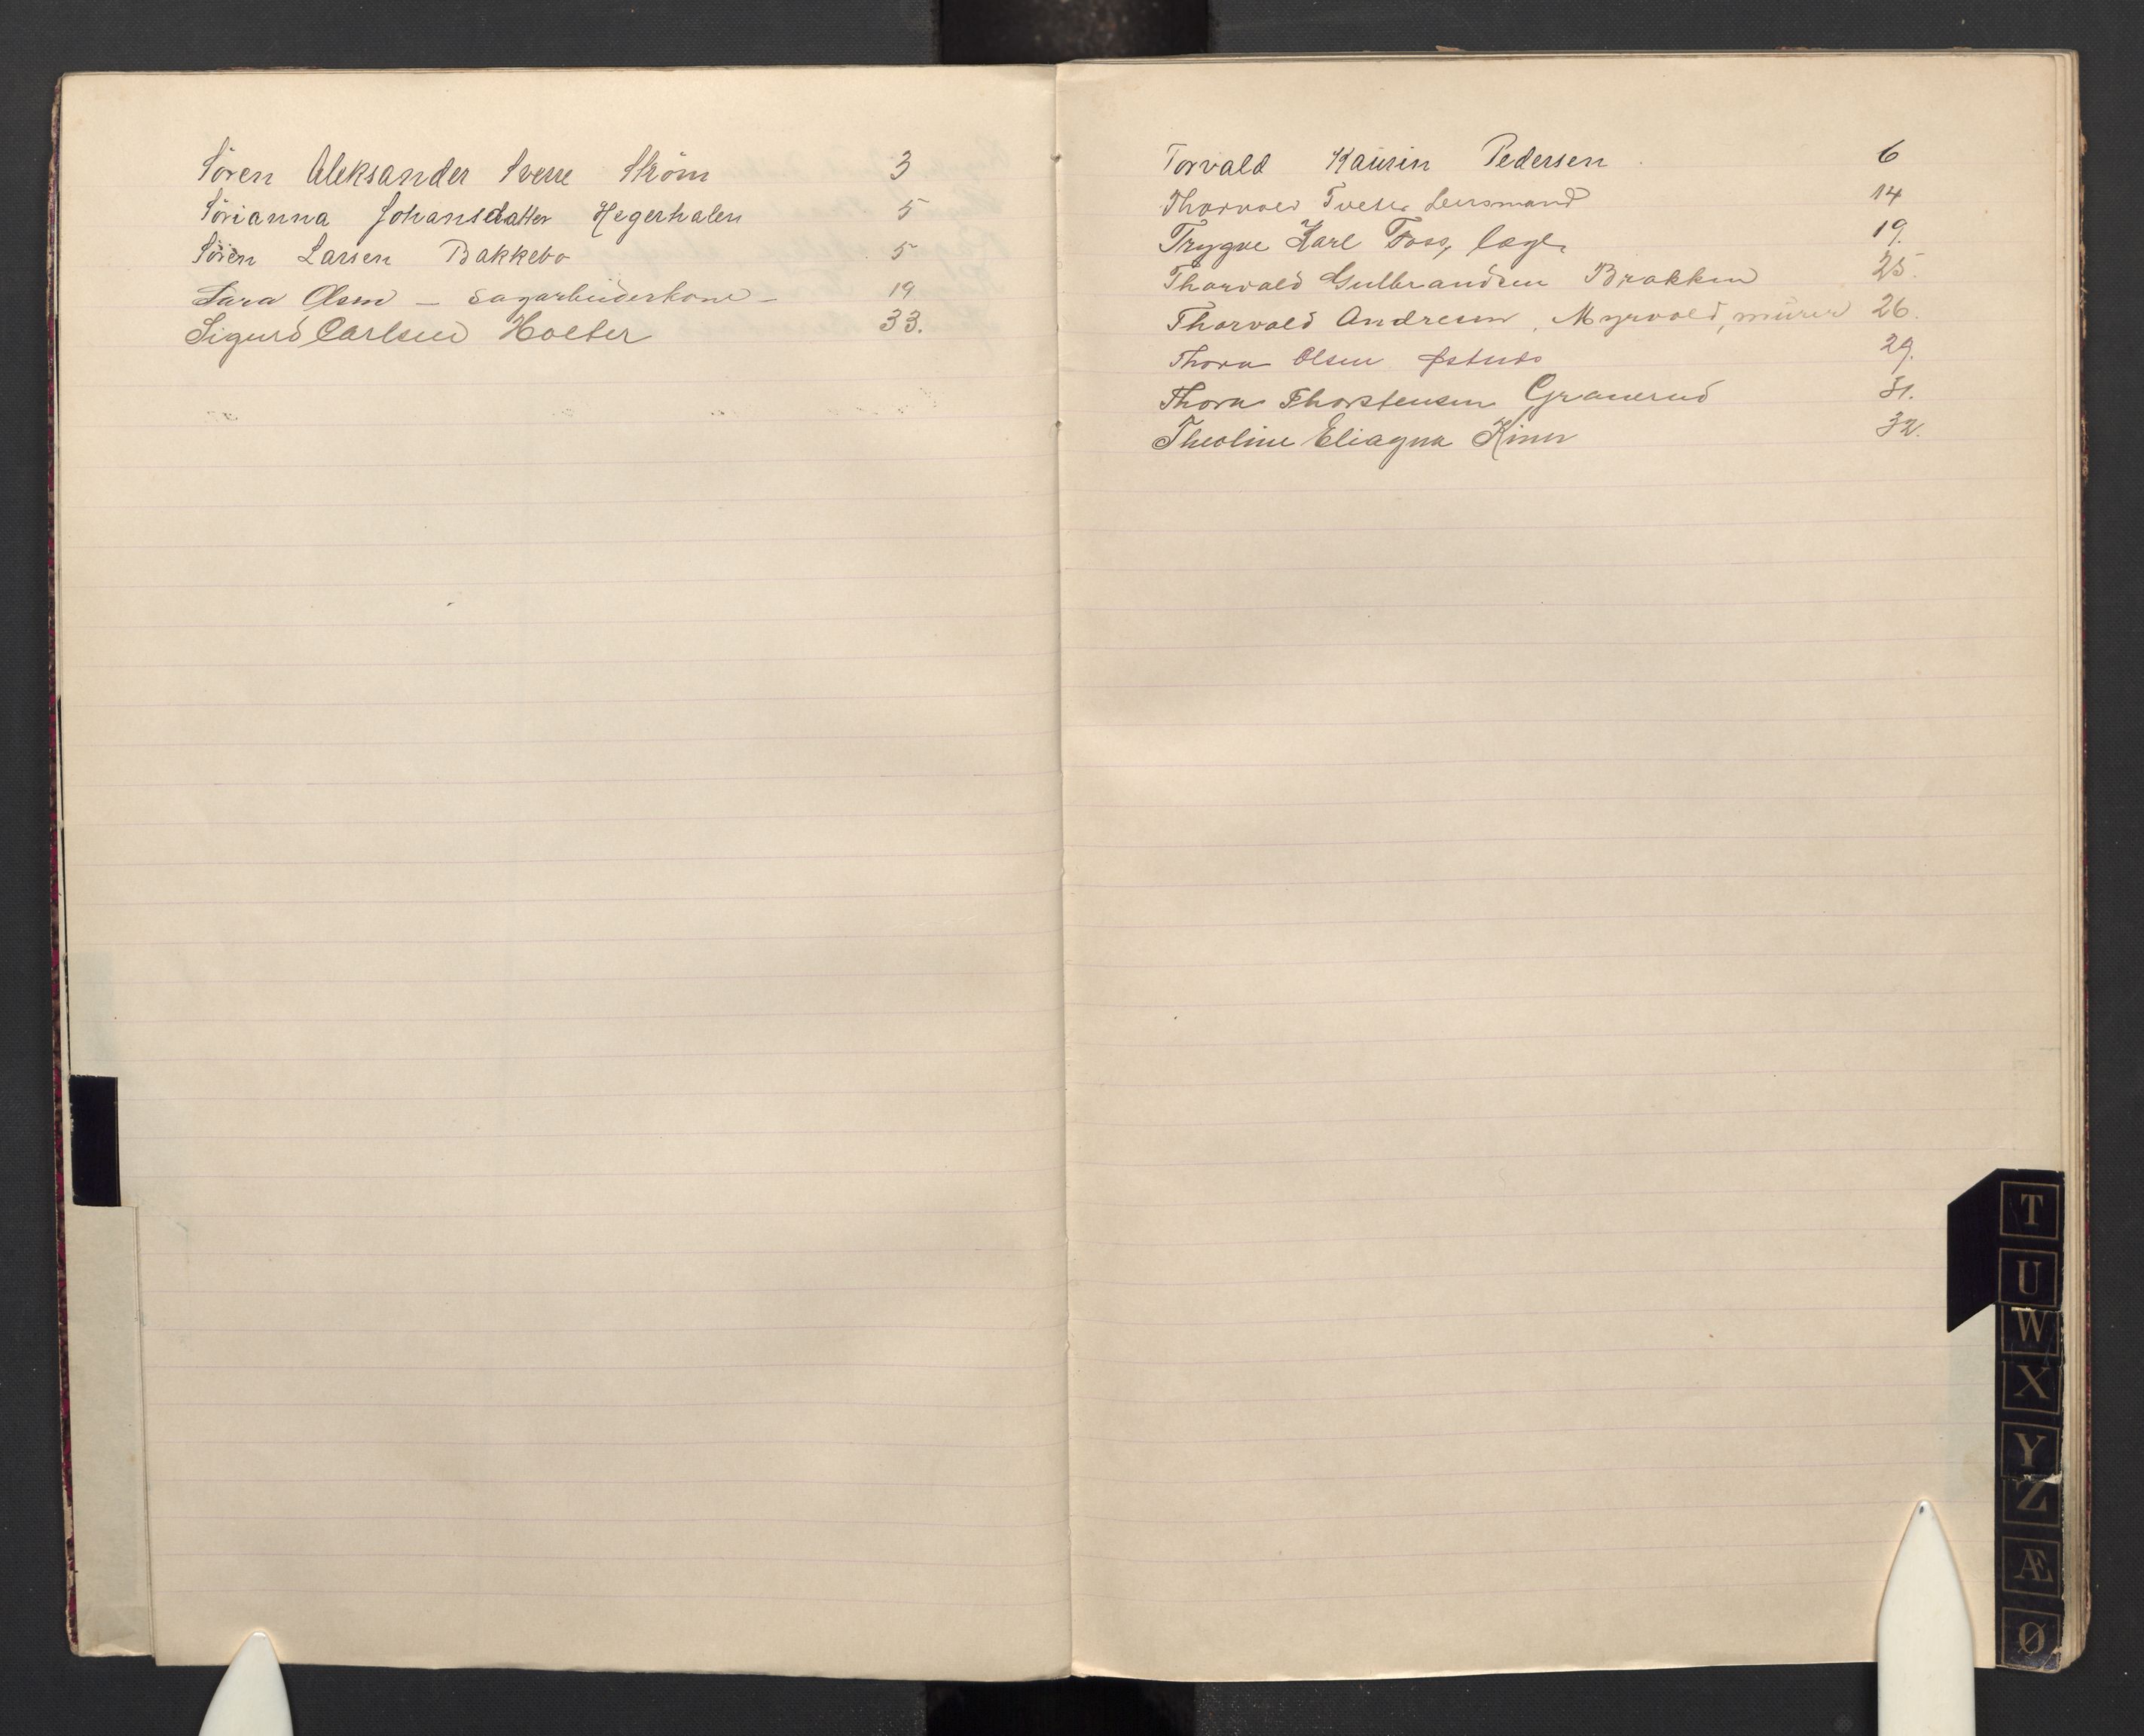 Sören Aleksander Sverre Ström 3
Sörianna Johansdatter Hegerhalen 5
Sören Larsen Bakkebo 5
Sara Olsen – Sagarbeiderkone – 19
Sigurd Carlsen Holter 33.
Torvald Kaurin Pedersen 6
Thorvald Tveter Lensmand 14
Trygve Karl Foss, læge 19.
Thorvald Gulbrandsen Brakken 25.
Thorvald Andresen, Myrvold, murer 26.
Thora Olsen Østubo 29.
Thora Thorstensen Granerud 31.
Theoline Eliagna 32.
T
U
W
X
Y
Z
Æ
Ø